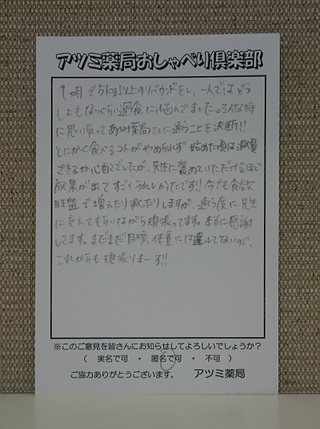 アツミ薬局おしゃべり倶楽部
1ヶ月で5kg以上のリバウンドをし、一人ではどう
しようもないくらい過食に悩んでました。そんな時
に思い切ってあつみ薬局さんに通うことを決断!!
とにかく食べるコトがやめれず 始めた頃は減量
できるか心配でしたが、先生に褒めていただけるほど
効果が出てすごくうれしかったです!! 今でも食欲
旺盛で増えたり減ったりしますが、通う度に先生
に支えてもらいながら頑張ってます。本当に感謝
してます。まだまだ目標体重には達してないが、
これからも頑張りまーす!!
※このご意見を皆さんにお知らせしてよろしいでしょうか?
( 実名で可 ・ 匿名で可 ・ 不可 )
ご協力ありがとうございます。 アツミ薬局